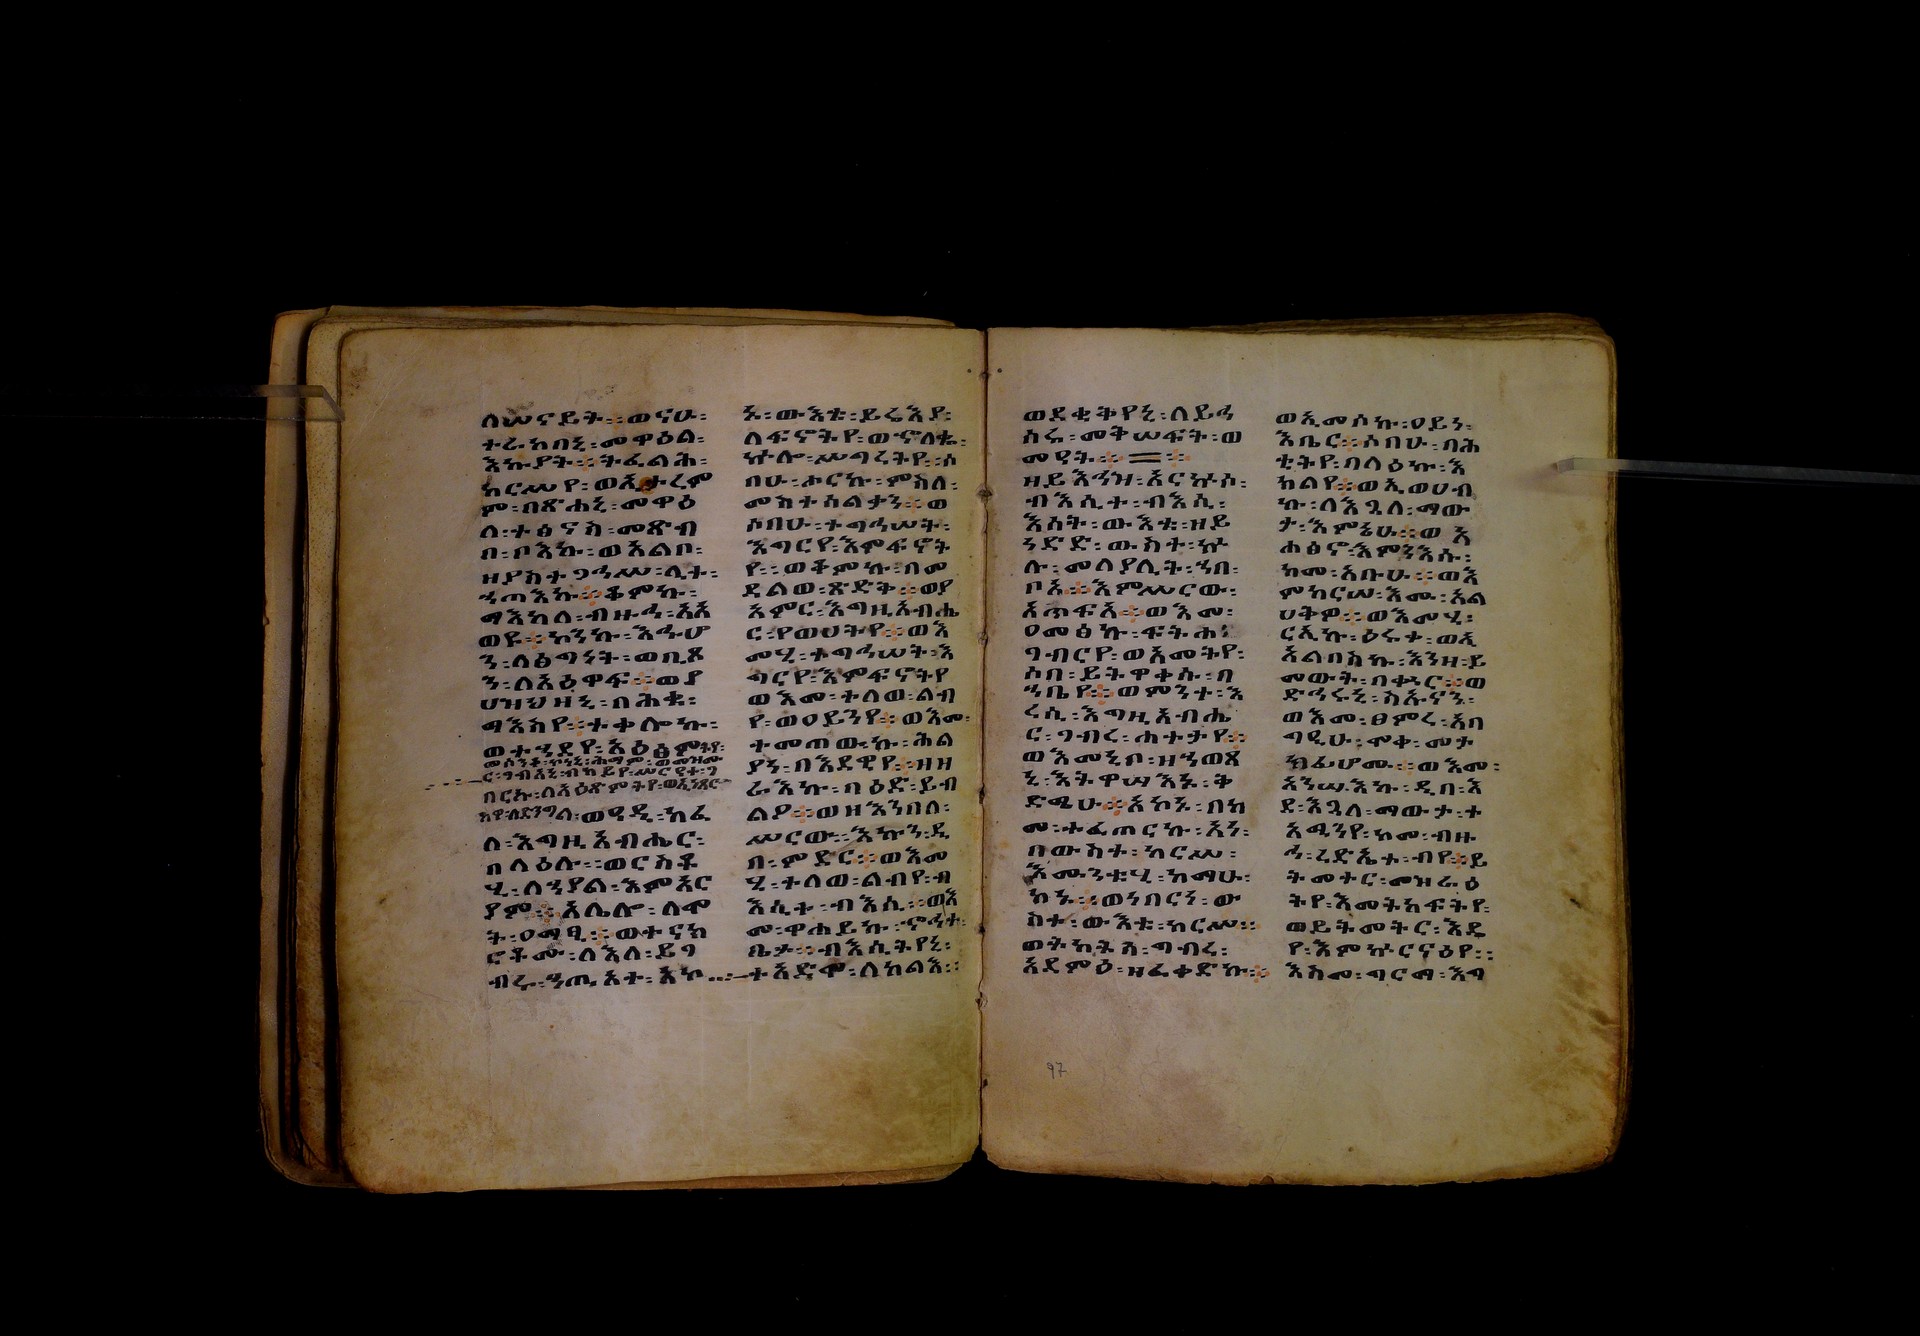 ለሠናይት፡፡ወናሁ፡
ተራከበኒ፡መዋዕል፡
እኩያት፨ትፈልሕ፡
ከርሠየ፡ወኢታረም
ም፡በጽሐኒ፡መዋዕ
ለ፡ተፅናስ፡መጽብ
በ፡ቦእኩ፡ወአልቦ፡
ዘያስተጋዓሡ፡ሊት፡
ኃጣእኩ፨ቆምኩ፡
ማእከለ፡ብዙኃ፡አእ
ወዩ፨ኮንኩ፡እኁሆ
ን፡ለፅግነት፡ወቢጾ
ን፡ለአዕዋፍ፨ወያ
ሀዝህዘኒ፡በሕቁ፡
ማእስየ፨ተቀሎኩ፡
ወተኃደየ፡አዕፅምትየ፡
ለ፡እግዚአብሔር፡
በላዕሉ፡፡ወርስቱ
ሂ፡ለኃያል፡እምአር
ያም፨አሌሎ፡ለሞ
ት፡ዐማፂ፨ወተናክ
ሮቶሙ፡ለእለ፡ይገ
ብሩ፡ኃጢአተ፡እኮ
ኑ፡ውእቱ፡ይሬእያ፡
ለፍኖትየ፡ወኖለቈ፡
ኵሎ፡ሥግረትየ፡፡ሶ
በሁ፡ሖርኩ፡ምስለ፡
መስተሳልቃን፨ወ
ሶበሁ፡ተግኃሠት፡
እግርየ፡እምፍኖት
የ፡፡ወቆምኩ፡በመ
ደልወ፡ጽድቅ፨ወያ
አምር፡እግዚአብሔ
ር፡የወሀትየ፨ወእ
መሂ፡ተግኃሠት፡እ
ግርየ፡እምፍኖትየ
ወእመ፡ተለወ፡ልብ
የ፡ወዐይንየ፨ወእመ፡
ተመጠውኩ፡ሕል
ያነ፡በእደዊየ፨ዘዘ
ራእኩ፡ባዕድ፡ይብ
ልዖ፨ወዘእንበለ፡
ሥርው፡፡እኩን፡ዲ
በ፡ምድር፨ወእመ
ሂ፡ተለወ፡ልብየ፡ብ
እሲተ፡ብእሲ፨ወእ
መ፡ዋሐይኩ፡ኆኃተ፡
ቤታ፨ብእሲትየኒ፡
ተአድሞ፡ለከልእ፡፡
ወደቂቅየኒ፡ለይኃ
ሰሩ፡መቅሠፍት፡ወ
መዓት፨
ዘይእኅዝ፡አርኵሶ፡
ብእሲተ፡ብእሲ፡
እሳት፡ውእቱ፡ዘይ
ነድድ፡ውስተ፡ኵ
ሉ፡መለያሊት፡ኀበ፡
ቦአ፨እምሥርው፡
አጥፍአ፨ወእመ፡
ዐመፅኩ፡ፍትሐ፡
ገብርየ፡ወአመትየ፡
ሶበ፡ይትዋቀሱ፡በ
ኀቤየ፨ወምንተ፡እ
ሬሲ፡እግዚአብሔ
ር፡ገብረ፡ሐተታየ፨
ወእመኒቦ፡ዘኀወጾ
ኒ፡እትዋሣእኑ፡ቅ
ድሜሁ፨አኮኑ፡በከ
መ፡ተፈጠርኩ፡አነ፡
በውስተ፡ከርሥ፡
እሙንቱሂ፡ከማሁ፡
ኮኑ፨ወነበርነ፡ው
ስተ፡ውእቱ፡ከርሥ፡፡
ወትካት፡አ፡ግብረ፡
አደምዕ፡ዘፈቀድኩ፨
ወኢመሶኩ፡ዐይነ፡
እቤር፨ሶበሁ፡በሕ
ቲትየ፡በላዕኩ፡እ
ክልየ፨ወኢወሀብ
ኩ፡ለእጓለ፡ማው
ታ፡እምኔሁ፨ወእ
ሐፅኖ፡እምንእሱ፡
ከመ፡አቡሁ፨ወእ
ምከርሠ፡እሙ፡አል
ህቅዎ፨ወእመሂ፡
ርኢኩ፡ዕሩቀ፡ወኢ
አልበስኩ፡እንዘ፡ይ
መውት፡በቍር፨ወ
ድኁሩኒ፡ስኡናን፡
ወእመ፡ፀምረ፡አባ
ግዒሁ፡ሞቀ፡መታ
ክፊሆሙ፨ወእመ፡
አንሣእኩ፡ዲበ፡እ
ደ፡እጓለ፡ማውታ፡ተ
አሚንየ፡ከመ፡ብዙ
ኃ፡ረድኤተ፡ብየ፨ይ
ትመተር፡መዝራዕ
ትየ፡እመትከፍትየ፡
ወይትመትር፡እዴ
የ፡እምኵርናዕየ፡፡
እስመ፡ግርማ፡እግ
97